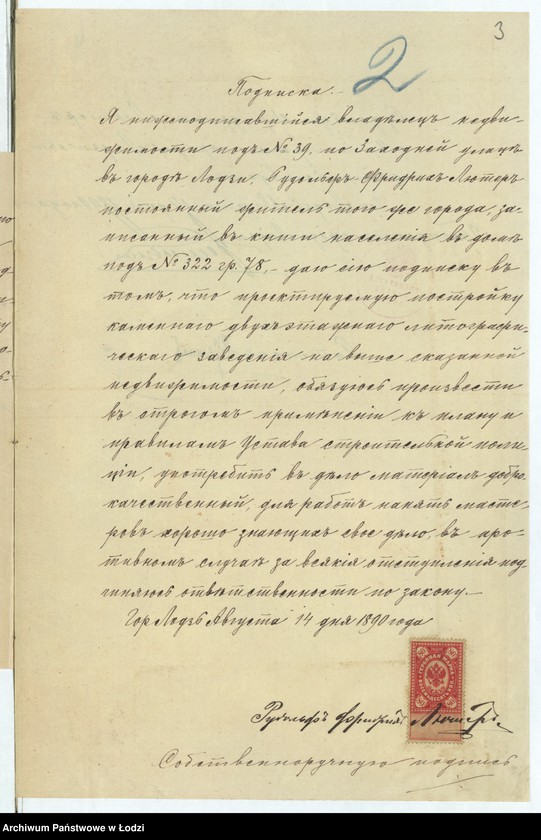 3
2
Подписка.
Я нижеподписавшійся владѣлецъ недви-
жимости подъ № 39, по Заходней улицѣ
въ городѣ Лодзи, Рудольфъ-Фридрихъ Лютеръ
постоянный житель того же города, за-
писанный въ книги населенія въ домѣ
подъ № 322 гр. 78, – даю сію подписку въ
томъ, что проектируемую постройку
каменнаго двухъэтажнаго литографи-
ческаго заведенія на выше сказанной
недвижимости, обязуюсь произвести
въ строгомъ примѣненіи къ плану и
правиламъ Устава строительной поли-
ціи, употребить въ дѣло матеріалъ добро-
качественный, для работъ нанять масте-
ровъ хорошо знающихъ свое дѣло, въ про-
тивномъ случаѣ за всякія отступленія под-
чиняюсь отвѣтственности по закону. –
Гор. Лодзь Августа 14 дня 1890 года
Рудольфъ Фридрихъ Лютеръ
Собственноручную подпись
Archiwum Państwowe w Łodzi